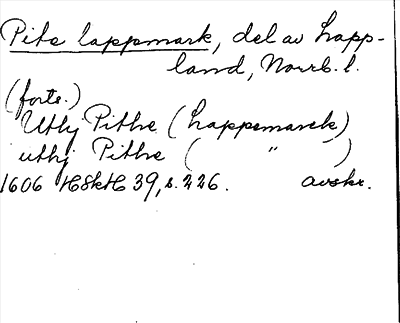 Pite lappmark, del av Lapp-
land, Norrb. l.
(forts.)
Uthj Pithe (Lappemarck)
uthj Pithe ( " )
1606 HSkH 39, s. 226. avskr.